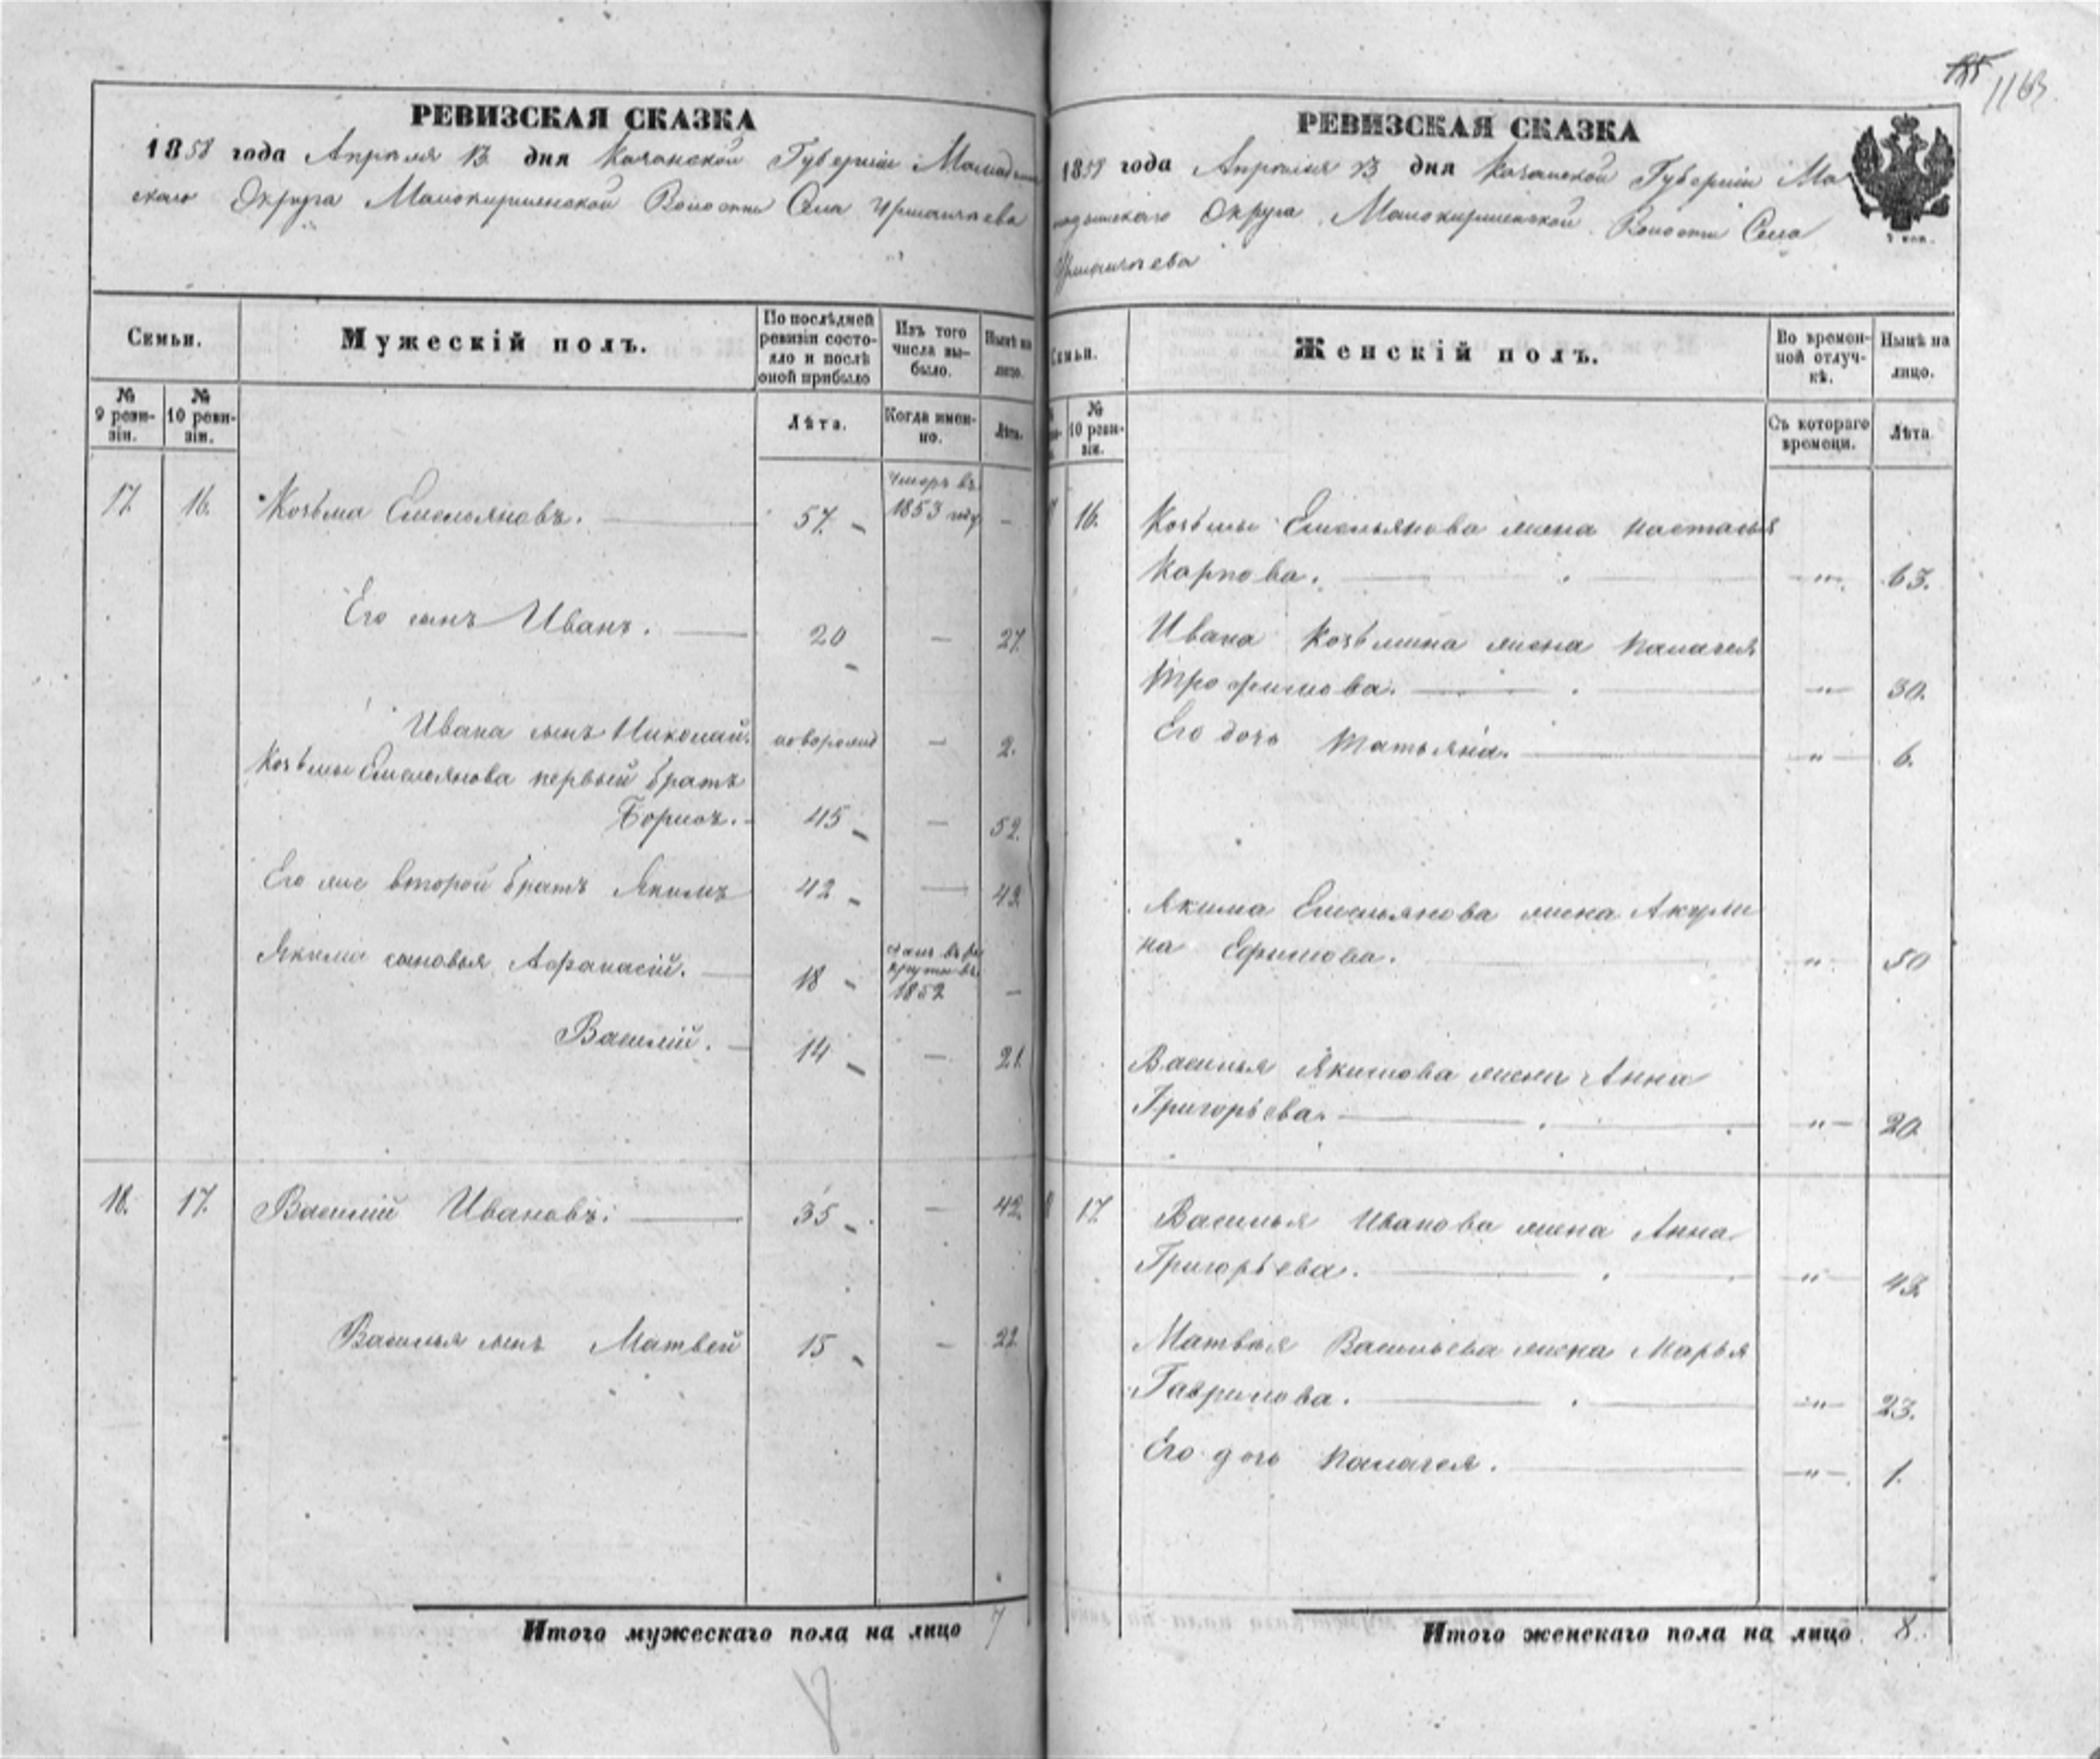 1163
РЕВИЗСКАЯ СКАЗКА
1858 года Апреля 13 дня Казанской Губерніи Мамадыш
скаго Округа Малокирменской Волости Села Уршанчева
Семьи.
Мужескій полъ.
По послѣдней ревизіи состояло и послѣ оной прибыло
Изъ того числа вы-было.
Нынѣ на лицо.
№ 9 реви-зіи.
№ 10 реви-зіи.
Лѣта.
Когда имен-но.
Лѣта.
17. 16. Козьма Емельяновъ. 57. умеръ въ 1853 году —
Его сынъ Иванъ. 20 — 27.
Ивана сынъ Николай. новорожд — 2.
Козьмы Емельянова первый братъ
Борисъ. 45 — 52.
Его же второй братъ Якимъ 42 — 49.
Якима сыновья Афанасій. 18 въ рекруты въ 1852 —
Василій. 14 — 21.
18. 17. Василій Ивановъ. 35 — 42.
Василья сынъ Матвей 15 — 22
Итого мужескаго пола на лицо 7
РЕВИЗСКАЯ СКАЗКА
1858 года Апреля 13 дня Казанской Губерніи Ма
мадышскаго Округа Малокирменской Волости Села
Уршанчева
Семьи.
Женскій полъ.
Во времен-ной отлуч-кѣ.
Нынѣ на лицо.
№ 10 реви-зіи.
Съ котораго времени.
Лѣта
16. Козьмы Емельянова жена Настасья
Карпова. — " — 63.
Ивана Козьмина жена Палагея
Трофимова. — " — 30.
Его дочь Татьяна. — " — 6.
Якима Емельянова жена Акули
на Ефимова. — " — 50
Василья Якимова жена Анна
Григорьева. — " — 20.
17. Василья Иванова жена Анна
Григорьева. — " — 43.
Матвея Васильева жена Марья
Гаврилова. — " — 23.
Его дочь Палагея. — " — 1.
Итого женскаго пола на лицо 8.